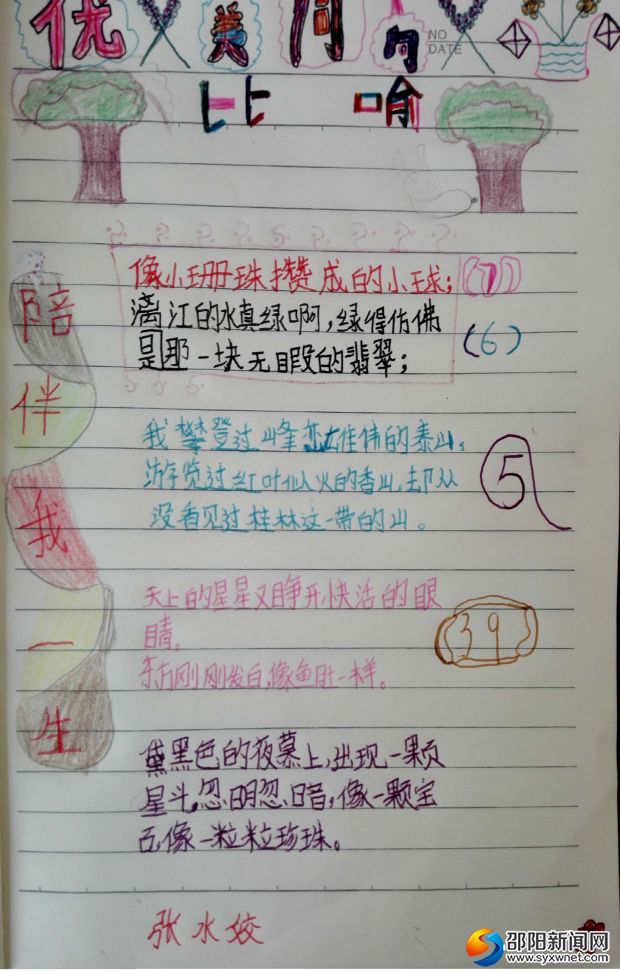 优美词句
NO
DATE
比喻
像小珊珠攒成的小球；(7)
漓江的水真绿啊，绿得仿佛
是那一块无暇的翡翠；
(6)
我攀登过峰峦雄伟的泰山。
游览过红叶似火的香山，却从
没看见过桂林这一带的山。
5
天上的星星又睁开快活的眼
睛。
东方刚刚发白，像鱼肚一样。
39
黛黑色的夜幕上，出现一颗
星斗，忽明忽暗，像一颗宝
石，像一粒粒珍珠。
陪伴我一生
张水姣
邵阳新闻网
www.syxwnet.com